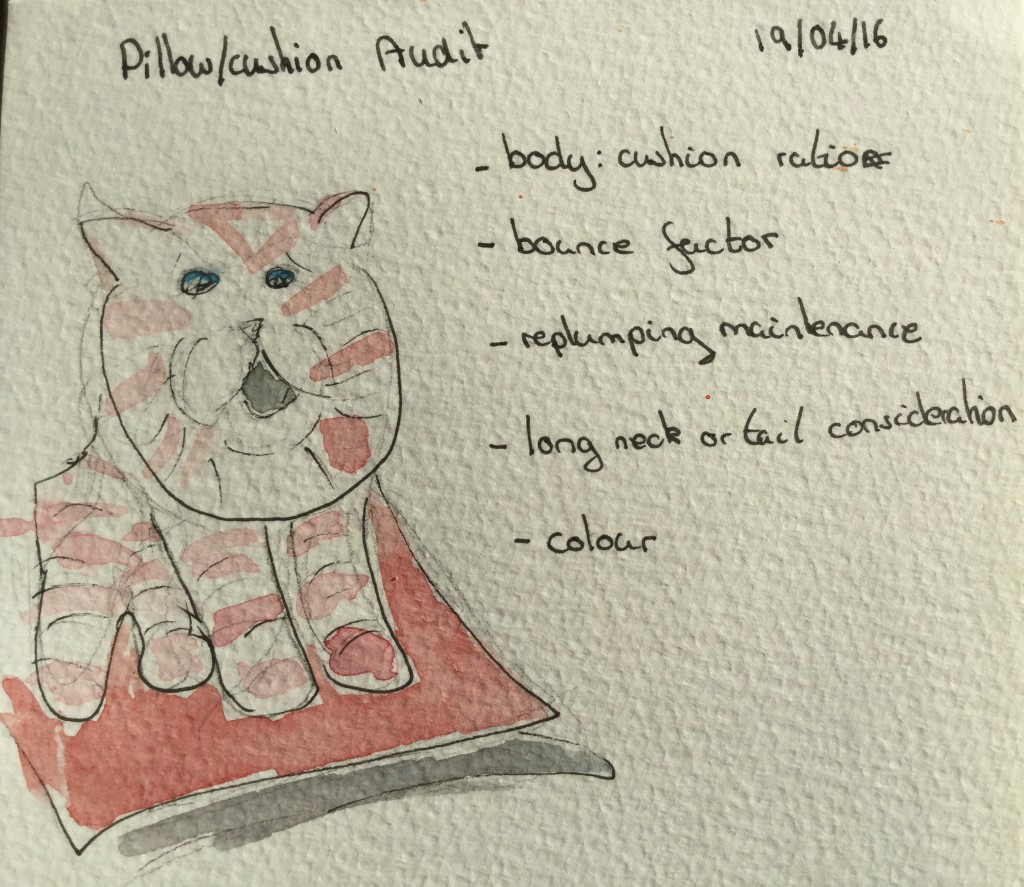 Pillow/cushion Audit 19/04/16
- body: cushion ratio
- bounce factor
- replumping maintenance
- long neck or tail consideration
- colour